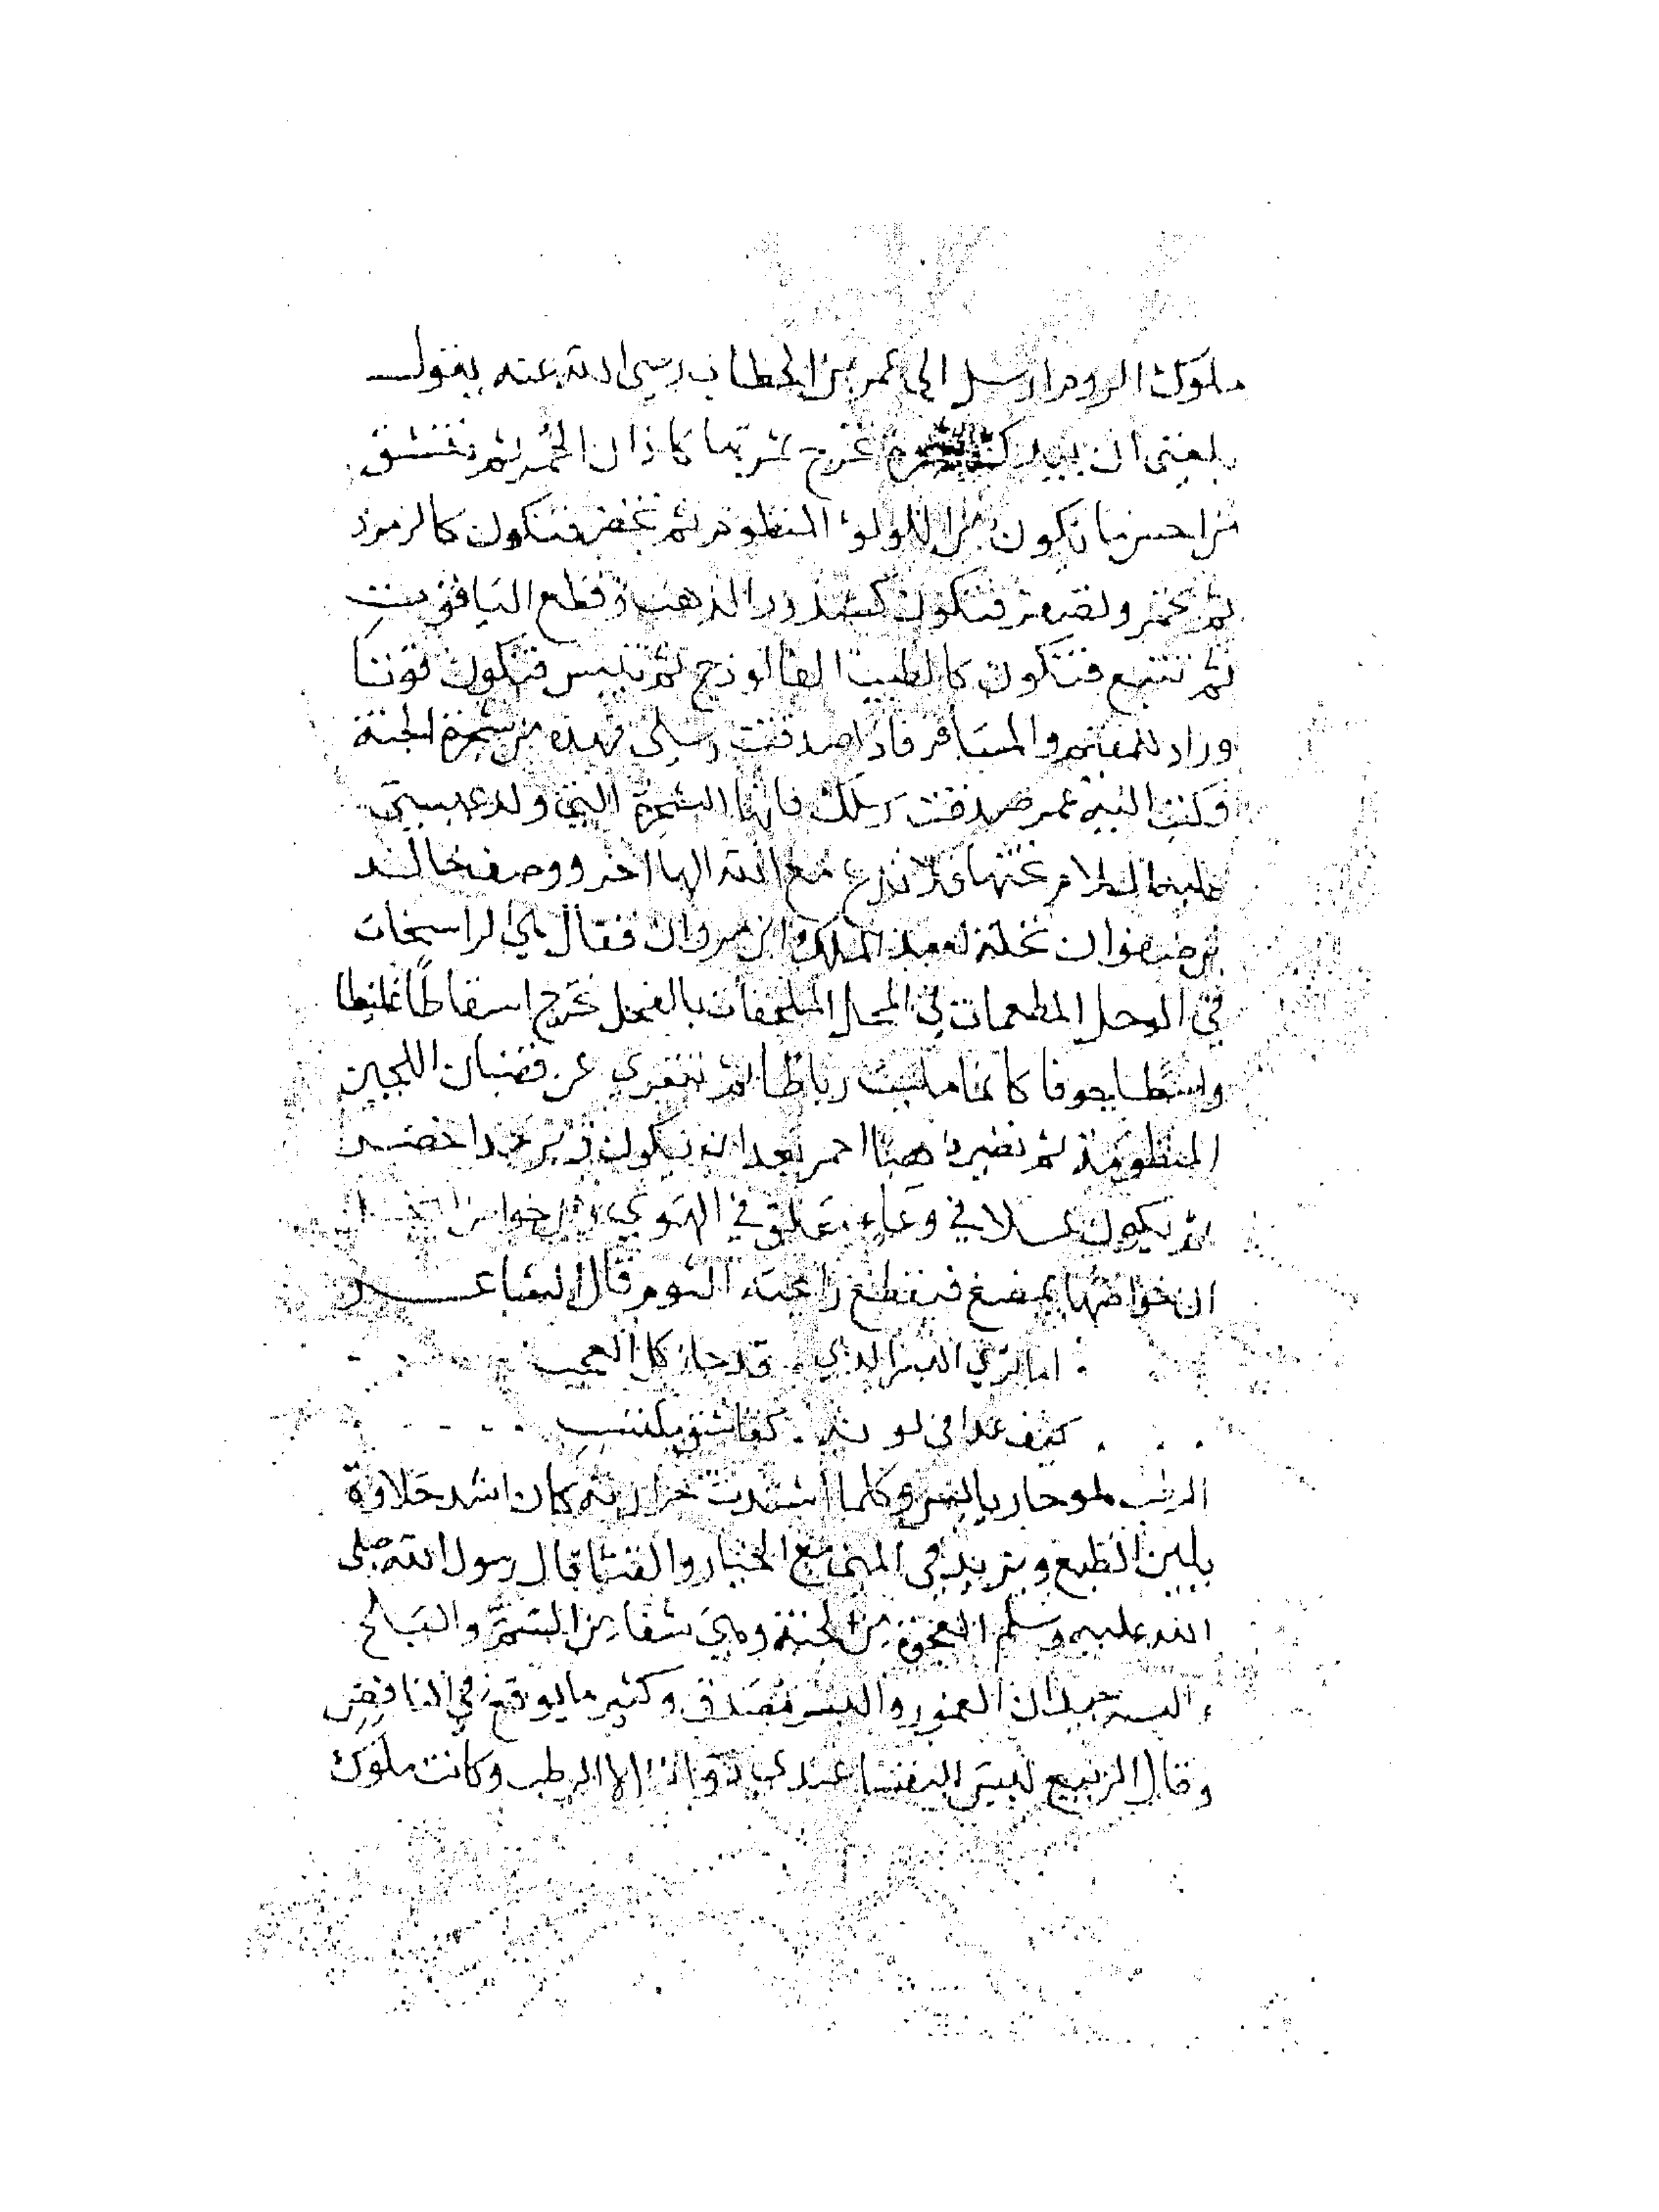 ملوك الروم ارسل الى عمر بن الخطاب رضى الله عنه يقول
بلغنى ان ببلدكم شجرة تخرج ثمرتها كاذان الحُمر ثم تنشق
من احسن ما تكون من اللولو المنظوم ثم تخضر فتكون كالزمرد
ثم تحمر وتصفر فتكون كشذور الذهب وقطع الياقوت
ثم تينع فتكون كالطيب الفالوذج ثم تيبس فتكون قوتا
وزاد للمقيم والمسافر فاذا صدقت رسلى فهذه من شجرة الجنة
وكتب اليه عمر صدقت رسلك فانها الشجرة التي ولد عيسى
عليه السلام تحتها فلا تدع مع الله الها اخر ووصف خالد
بن صفوان نخلة لعبد الملك بن مروان فقال هي الراسخات
في الوحل المطعمات في المحل الملحقات بالفحل تخرج اسقاطًا غليظا
وسطا يحوفا كانما مليت رياطا ثم تتفرى عن قضبان اللجين
المنظومة ثم تصير ذهبا احمر بعد ان تكون زبرجدا اخضر
ثم يكون عسلا في وعاء معلق في الهوى
ان خواصها يمضغ فيقطع رائحة الثوم قال الشاعر
اما ترى البسر الذي قد حاز كل العجب
كيف غدا فى لونه
الرطب لمو حار يالبسر وكلما اشتدت حرارته كان اشد حلاوة
يلين الطبع ويزيد في المنى مع الخيار والقثا قال رسول الله صلى
الله عليه وسلم العجوة من الجنة وهي شفا من السم والبلح
والبسر جيدان العمور والبسر مصدق وكثير ما يوقع في النافض
وقال الربيع ليس للنفسا عندي دوا الا الرطب وكانت ملوك